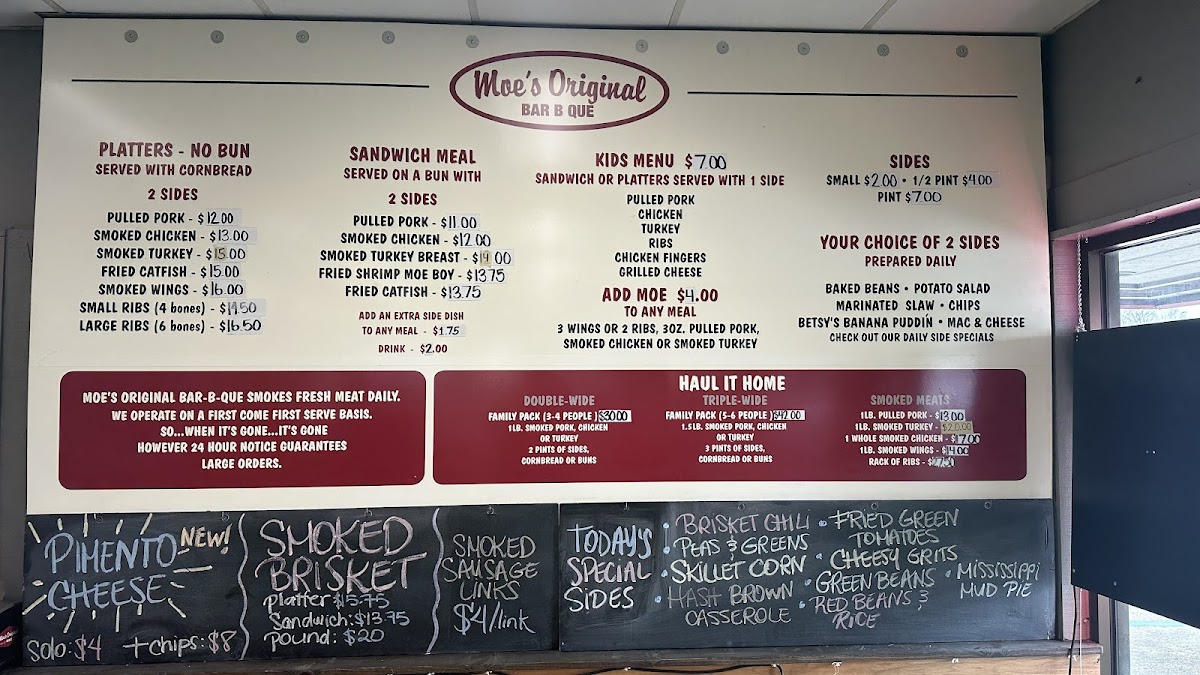 Moe's Original
BAR B QUE
PLATTERS - NO BUN
SERVED WITH CORNBREAD
2 SIDES
PULLED PORK - $12.00
SMOKED CHICKEN - $13.00
SMOKED TURKEY - $15.00
FRIED CATFISH - $15.00
SMOKED WINGS - $16.00
SMALL RIBS (4 bones) - $14.50
LARGE RIBS (6 bones) - $16.50
SANDWICH MEAL
SERVED ON A BUN WITH
2 SIDES
PULLED PORK - $11.00
SMOKED CHICKEN - $12.00
SMOKED TURKEY BREAST - $14.00
FRIED SHRIMP MOE BOY - $13.75
FRIED CATFISH - $13.75
ADD AN EXTRA SIDE DISH
TO ANY MEAL - $1.75
DRINK - $2.00
KIDS MENU $7.00
SANDWICH OR PLATTERS SERVED WITH 1 SIDE
PULLED PORK
CHICKEN
TURKEY
RIBS
CHICKEN FINGERS
GRILLED CHEESE
ADD MOE $4.00
TO ANY MEAL
3 WINGS OR 2 RIBS, 3OZ. PULLED PORK,
SMOKED CHICKEN OR SMOKED TURKEY
SIDES
SMALL $2.00 • 1/2 PINT $4.00
PINT $7.00
YOUR CHOICE OF 2 SIDES
PREPARED DAILY
BAKED BEANS • POTATO SALAD
MARINATED SLAW • CHIPS
BETSY'S BANANA PUDDIN • MAC & CHEESE
CHECK OUT OUR DAILY SIDE SPECIALS
MOE'S ORIGINAL BAR-B-QUE SMOKES FRESH MEAT DAILY.
WE OPERATE ON A FIRST COME FIRST SERVE BASIS.
SO...WHEN IT'S GONE...IT'S GONE
HOWEVER 24 HOUR NOTICE GUARANTEES
LARGE ORDERS.
HAUL IT HOME
DOUBLE-WIDE
FAMILY PACK (3-4 PEOPLE) $30.00
1LB. SMOKED PORK, CHICKEN
OR TURKEY
2 PINTS OF SIDES,
CORNBREAD OR BUNS
TRIPLE-WIDE
FAMILY PACK (5-6 PEOPLE) $42.00
1.5LB. SMOKED PORK, CHICKEN
OR TURKEY
3 PINTS OF SIDES,
CORNBREAD OR BUNS
SMOKED MEATS
1LB. PULLED PORK - $13.00
1LB. SMOKED TURKEY - $20.00
1 WHOLE SMOKED CHICKEN - $17.00
1LB. SMOKED WINGS - $14.00
RACK OF RIBS -
PIMENTO
CHEESE
NEW!
Solo: $4 + chips: $8
SMOKED
BRISKET
platter $15.75
Sandwich: $13.75
pound: $20
SMOKED
SAUSAGE
LINKS
$4/link
TODAY'S
SPECIAL
SIDES
• BRISKET CHILI
• PEAS & GREENS
• SKILLET CORN
• HASH BROWN
CASSEROLE
• FRIED GREEN
TOMATOES
• CHEESY GRITS
• GREEN BEANS
• RED BEANS &
RICE
• MISSISSIPPI
MUD PIE